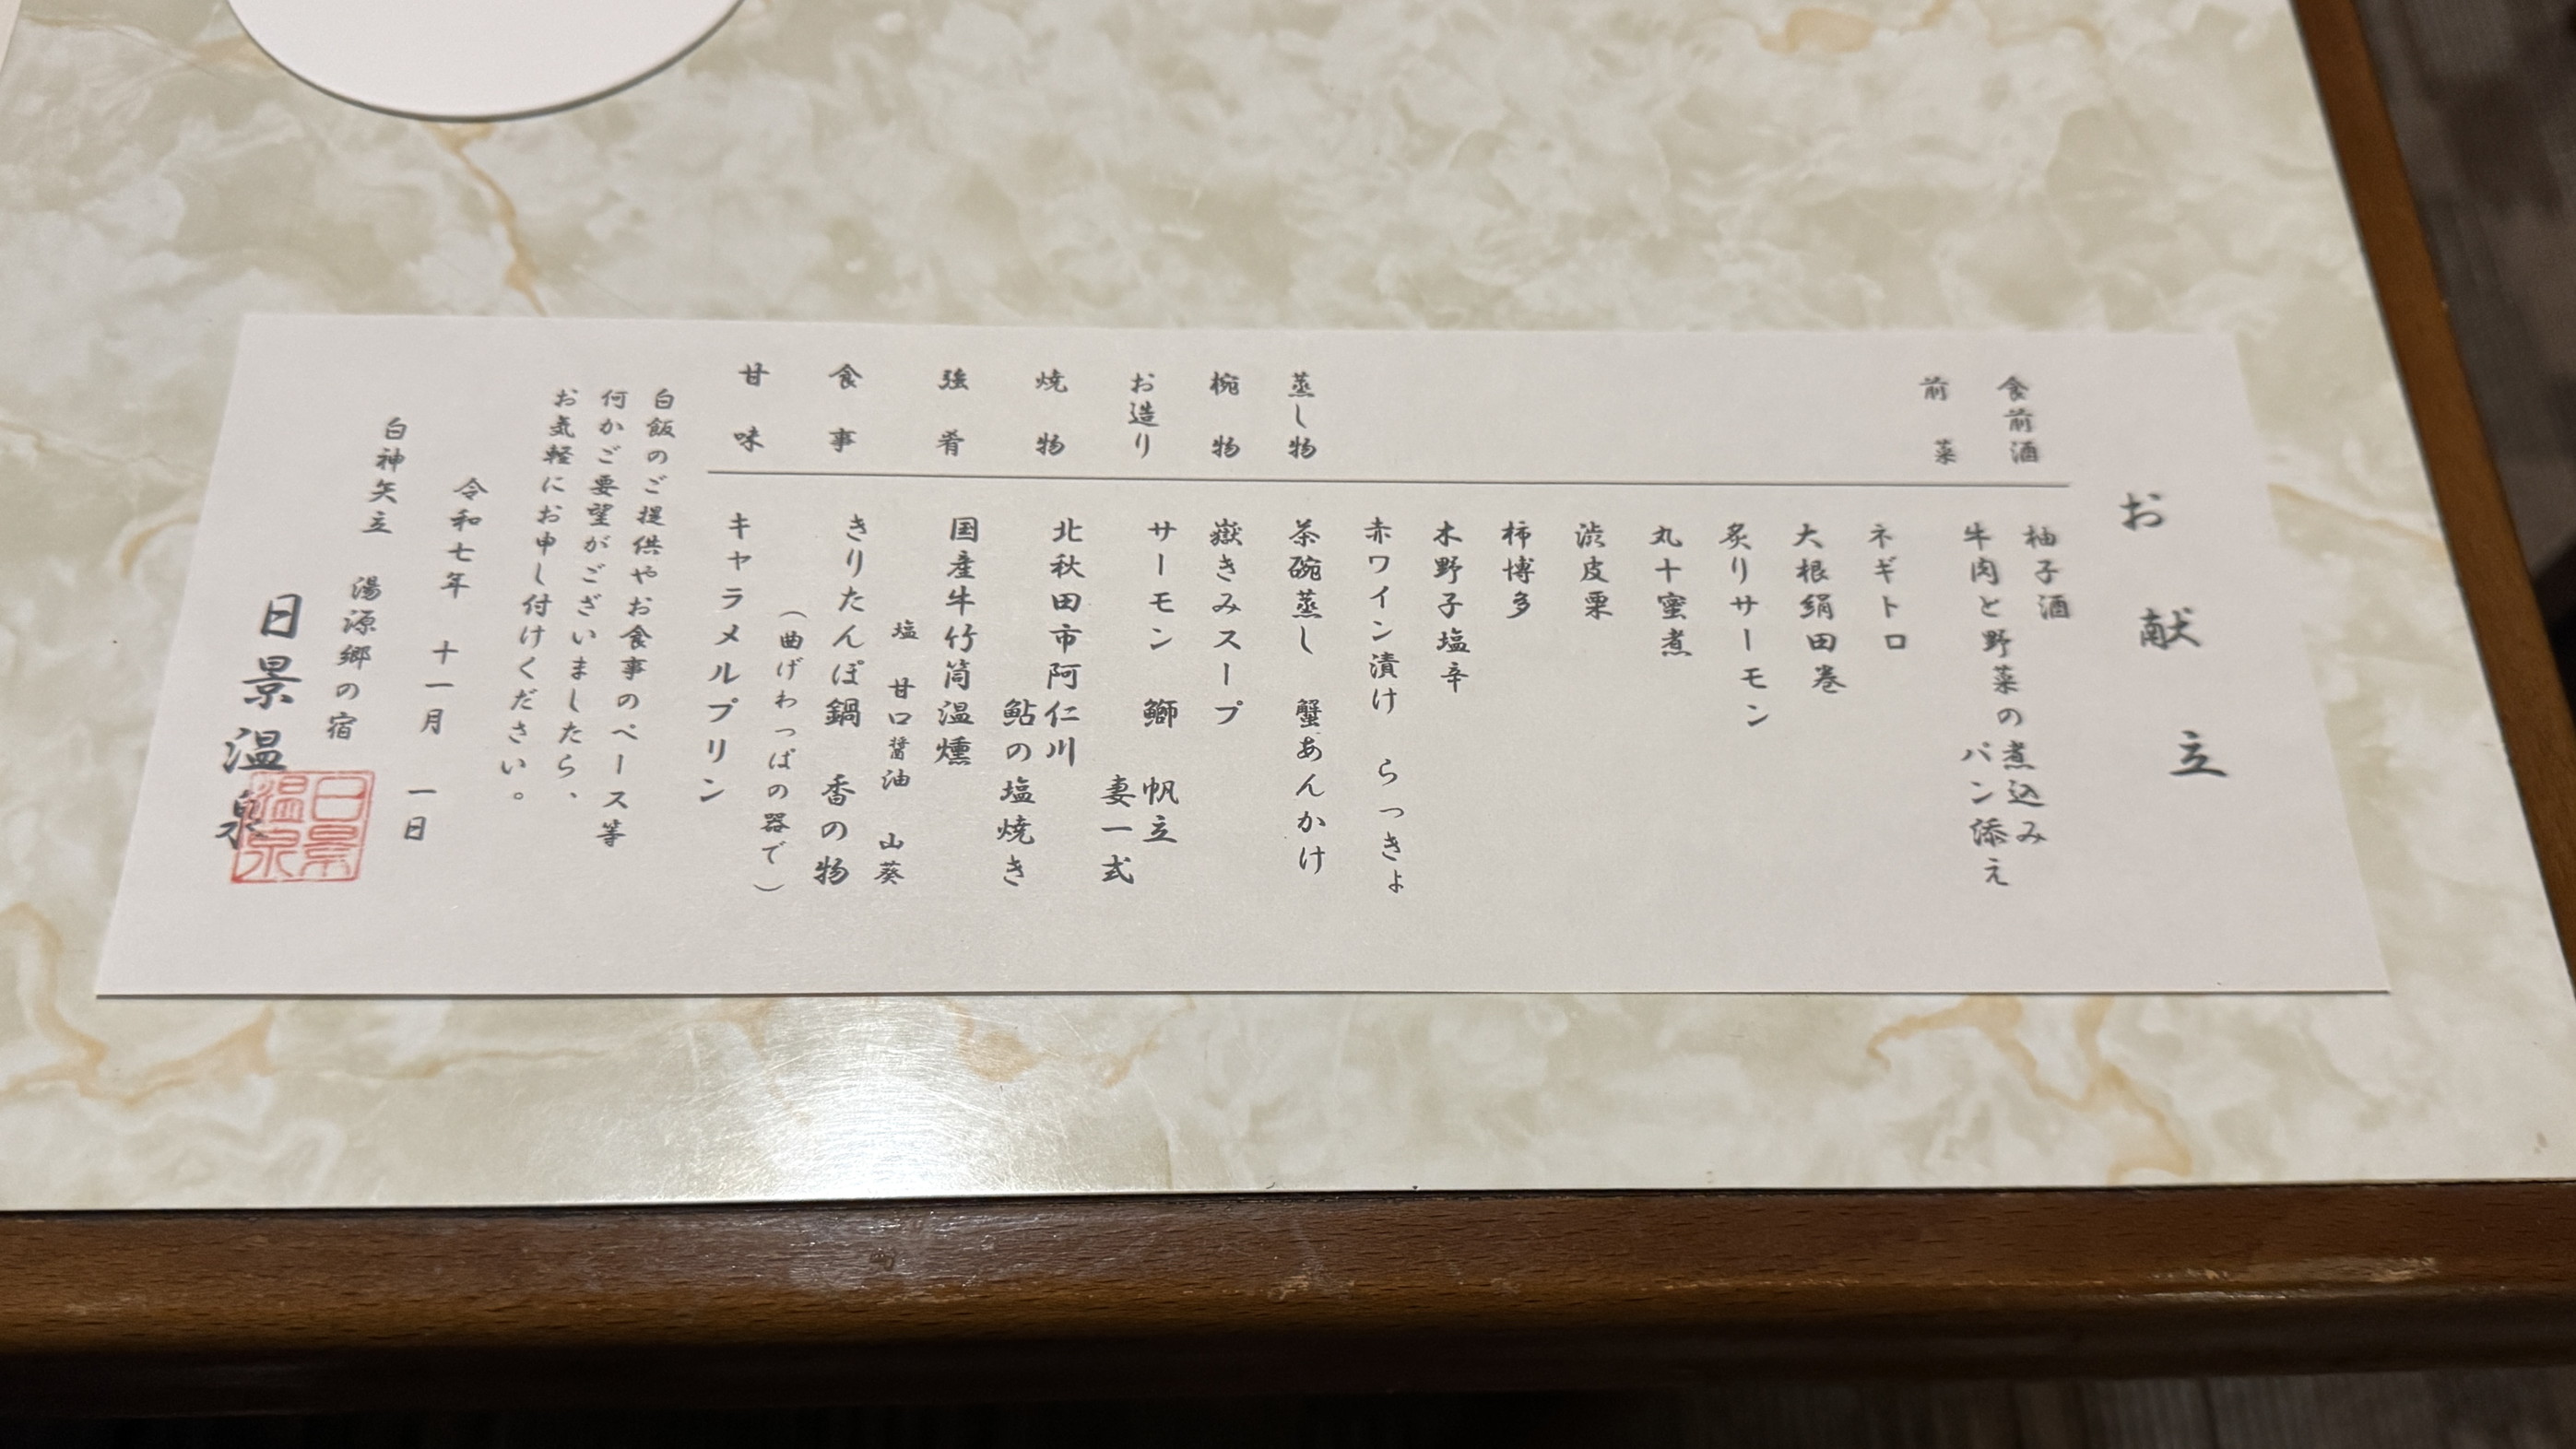 お献立
食前酒 柚子酒
前菜 牛肉と野菜の煮込み
パン添え
ネギトロ
大根絹田巻
炙りサーモン
丸十蜜煮
渋皮栗
柿博多
木野子塩辛
赤ワイン漬け らっきょ
蒸し物 茶碗蒸し 蟹あんかけ
椀物 嶽きみスープ
お造り サーモン 鰤 帆立
妻一式
焼物 北秋田市阿仁川
鮎の塩焼き
強肴 国産牛竹筒温燻
塩 甘口醤油 山葵
食事 きりたんぽ鍋 香の物
（曲げわっぱの器で）
甘味 キャラメルプリン
白飯のご提供やお食事のペース等
何かご要望がございましたら、
お気軽にお申し付けください。
令和七年 十一月 一日
白神矢立 湯源郷の宿
日景温泉
日景温泉